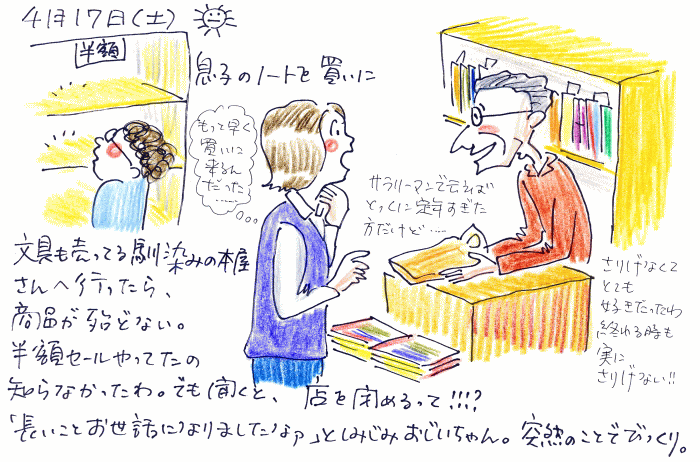 4月17日(土)
半額
息子のノートを買いに
もっと早く
買いに
来るん
だった…
……
サラリーマンで言えば
とっくに定年すぎた
方だけど……
文具も売ってる馴染みの本屋
さんへ行ったら、
商品が殆どない。
半額セールやってたの
知らなかったわ。でも聞くと、店を閉めるって!!!?
「長いことお世話になりましたなァ」としみじみおじいちゃん。突然のことでびっくり。
さりげなくて
とても
好きだったわ
終わる時も
実に
さりげない!!